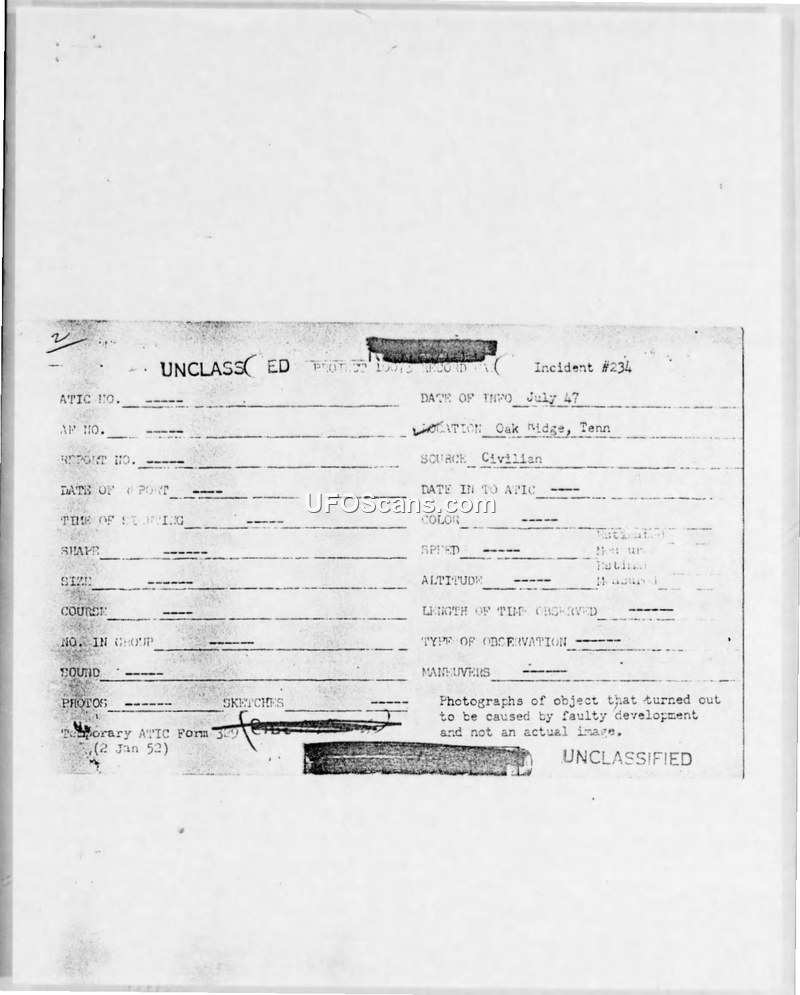 2
UNCLASS ED PROJECT 10073 RECORD Incident #234
ATIC NO. ----- DATE OF INFO July 47
AF NO. ----- LOCATION Oak Ridge, Tenn
REPORT NO. ----- SOURCE Civilian
DATE OF REPORT ---- DATE IN TO ATIC ----
UFOScans.com
TIME OF SIGHTING ----- COLOR -----
Estimated
SHAPE ------ SPEED ----- Measured
Estimated
SIZE ------ ALTITUDE ----- Measured
COURSE ---- LENGTH OF TIME OBSERVED ------
NO. IN GROUP ------ TYPE OF OBSERVATION ------
SOUND ----- MANEUVERS ------
PHOTOS ------ SKETCHES ----- Photographs of object that turned out
to be caused by faulty development
Temporary ATIC Form 329 and not an actual image.
(2 Jan 52)
UNCLASSIFIED